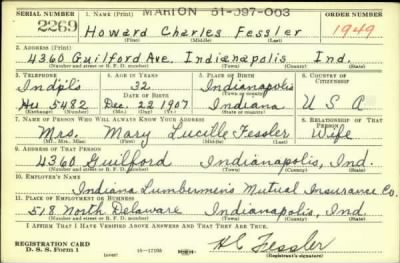 SERIAL NUMBER 1. NAME (Print) MARION 51-097-003 ORDER NUMBER
2269 Howard Charles Fessler 1949
(First) (Middle) (Last)
2. ADDRESS (Print)
4360 Guilford Ave. Indianapolis Ind.
(Number and street or R. F. D. number) (Town) (County) (State)
3. TELEPHONE 4. AGE IN YEARS 5. PLACE OF BIRTH 6. COUNTRY OF CITIZENSHIP
Ind'pl's 32 Indianapolis
(Town or county)
Hu 5482 Dec. 22 1907 Indiana U S A
7. NAME OF PERSON WHO WILL ALWAYS KNOW YOUR ADDRESS 8. RELATIONSHIP OF THAT PERSON
Mrs. Mary Lucille Fessler Wife
(Mr., Mrs., Miss) (First) (Middle) (Last)
9. ADDRESS OF THAT PERSON
4360 Guilford Indianapolis, Ind.
(Number and street or R. F. D. number) (Town) (County) (State)
10. EMPLOYER'S NAME
Indiana Lumbermens Mutual Insurance Co.
11. PLACE OF EMPLOYMENT OR BUSINESS
518 North Delaware Indianapolis, Ind.
(Number and street or R. F. D. number) (Town) (County) (State)
I AFFIRM THAT I HAVE VERIFIED ABOVE ANSWERS AND THAT THEY ARE TRUE.
REGISTRATION CARD
D. S. S. Form 1
H C Fessler
(Registrant's signature)